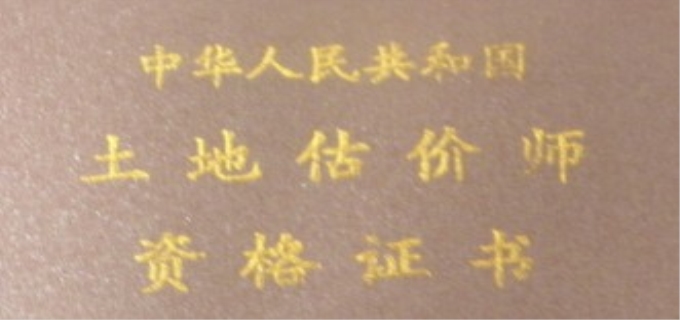 中华人民共和国
土地估价师
资格证书